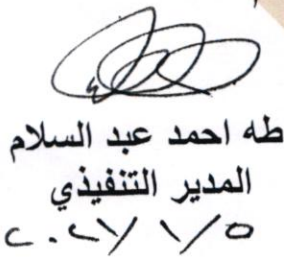 طه احمد عبد السلام
المدير التنفيذي
٢٠٢١/١/٥